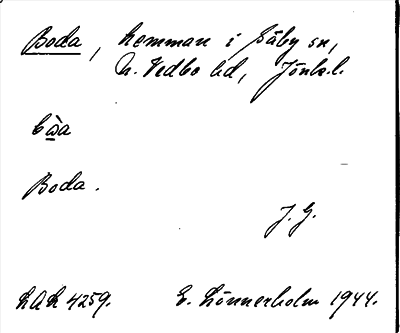 Boda, hemman i Säby sn,
N. Vedbo hd, Jönk.l.
bὼa
Boda.
J. G.
LAL 4259. E. Lönnerholm 1944.